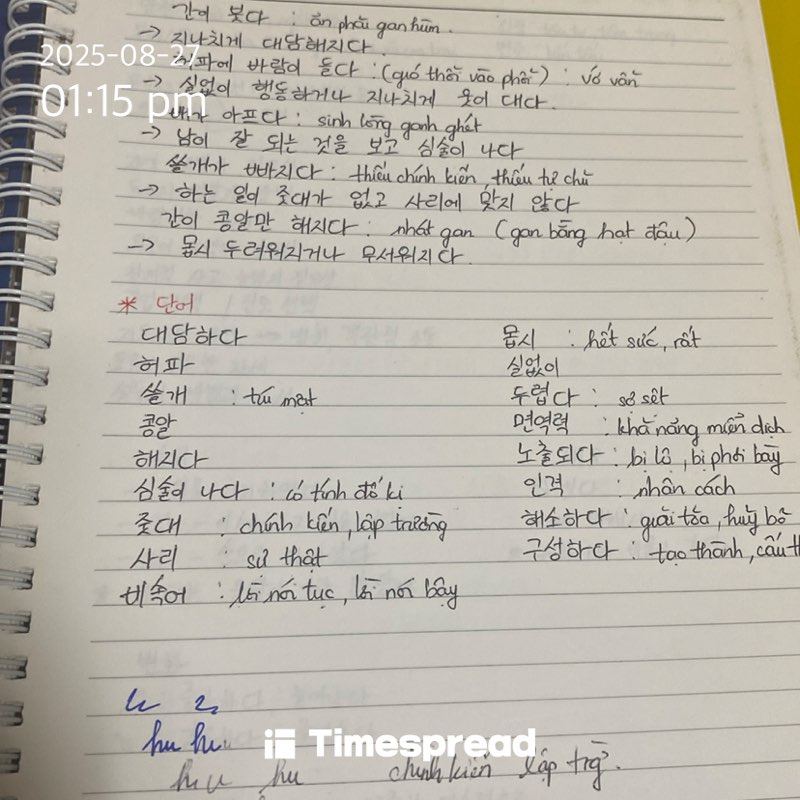 간이 붓다 : ăn phải gan hùm.
→ 지나치게 대담해지다.
2025-08-27
허파에 바람이 들다 : (gió thổi vào phổi) : vớ vẩn
01:15 pm
→ 실없이 행동하거나 지나치게 웃어 대다.
배가 아프다 : sinh lòng ganh ghét
→ 남이 잘 되는 것을 보고 심술이 나다
쓸개가 빠지다 : thiếu chính kiến, thiếu tự chủ
→ 하는 일이 줏대가 없고 사리에 맞지 않다
간이 콩알만 해지다 : nhát gan (gan bằng hạt đậu)
→ 몹시 두려워지거나 무서워지다.
* 단어
대담하다 몹시 : hết sức, rất
허파 실없이
쓸개 : túi mật 두렵다 : sợ sệt
콩알 면역력 : khả năng miễn dịch
해지다 노출되다 : bị lộ, bị phơi bày
심술이 나다 : có tính đố kị 인격 : nhân cách
줏대 : chính kiến, lập trường 해소하다 : giải tỏa, huỷ bỏ
사리 : sự thật 구성하다 : tạo thành, cấu th
비속어 : lời nói tục, lời nói bậy
hu hu
Timespread
hu hu chính kiến lập trg.